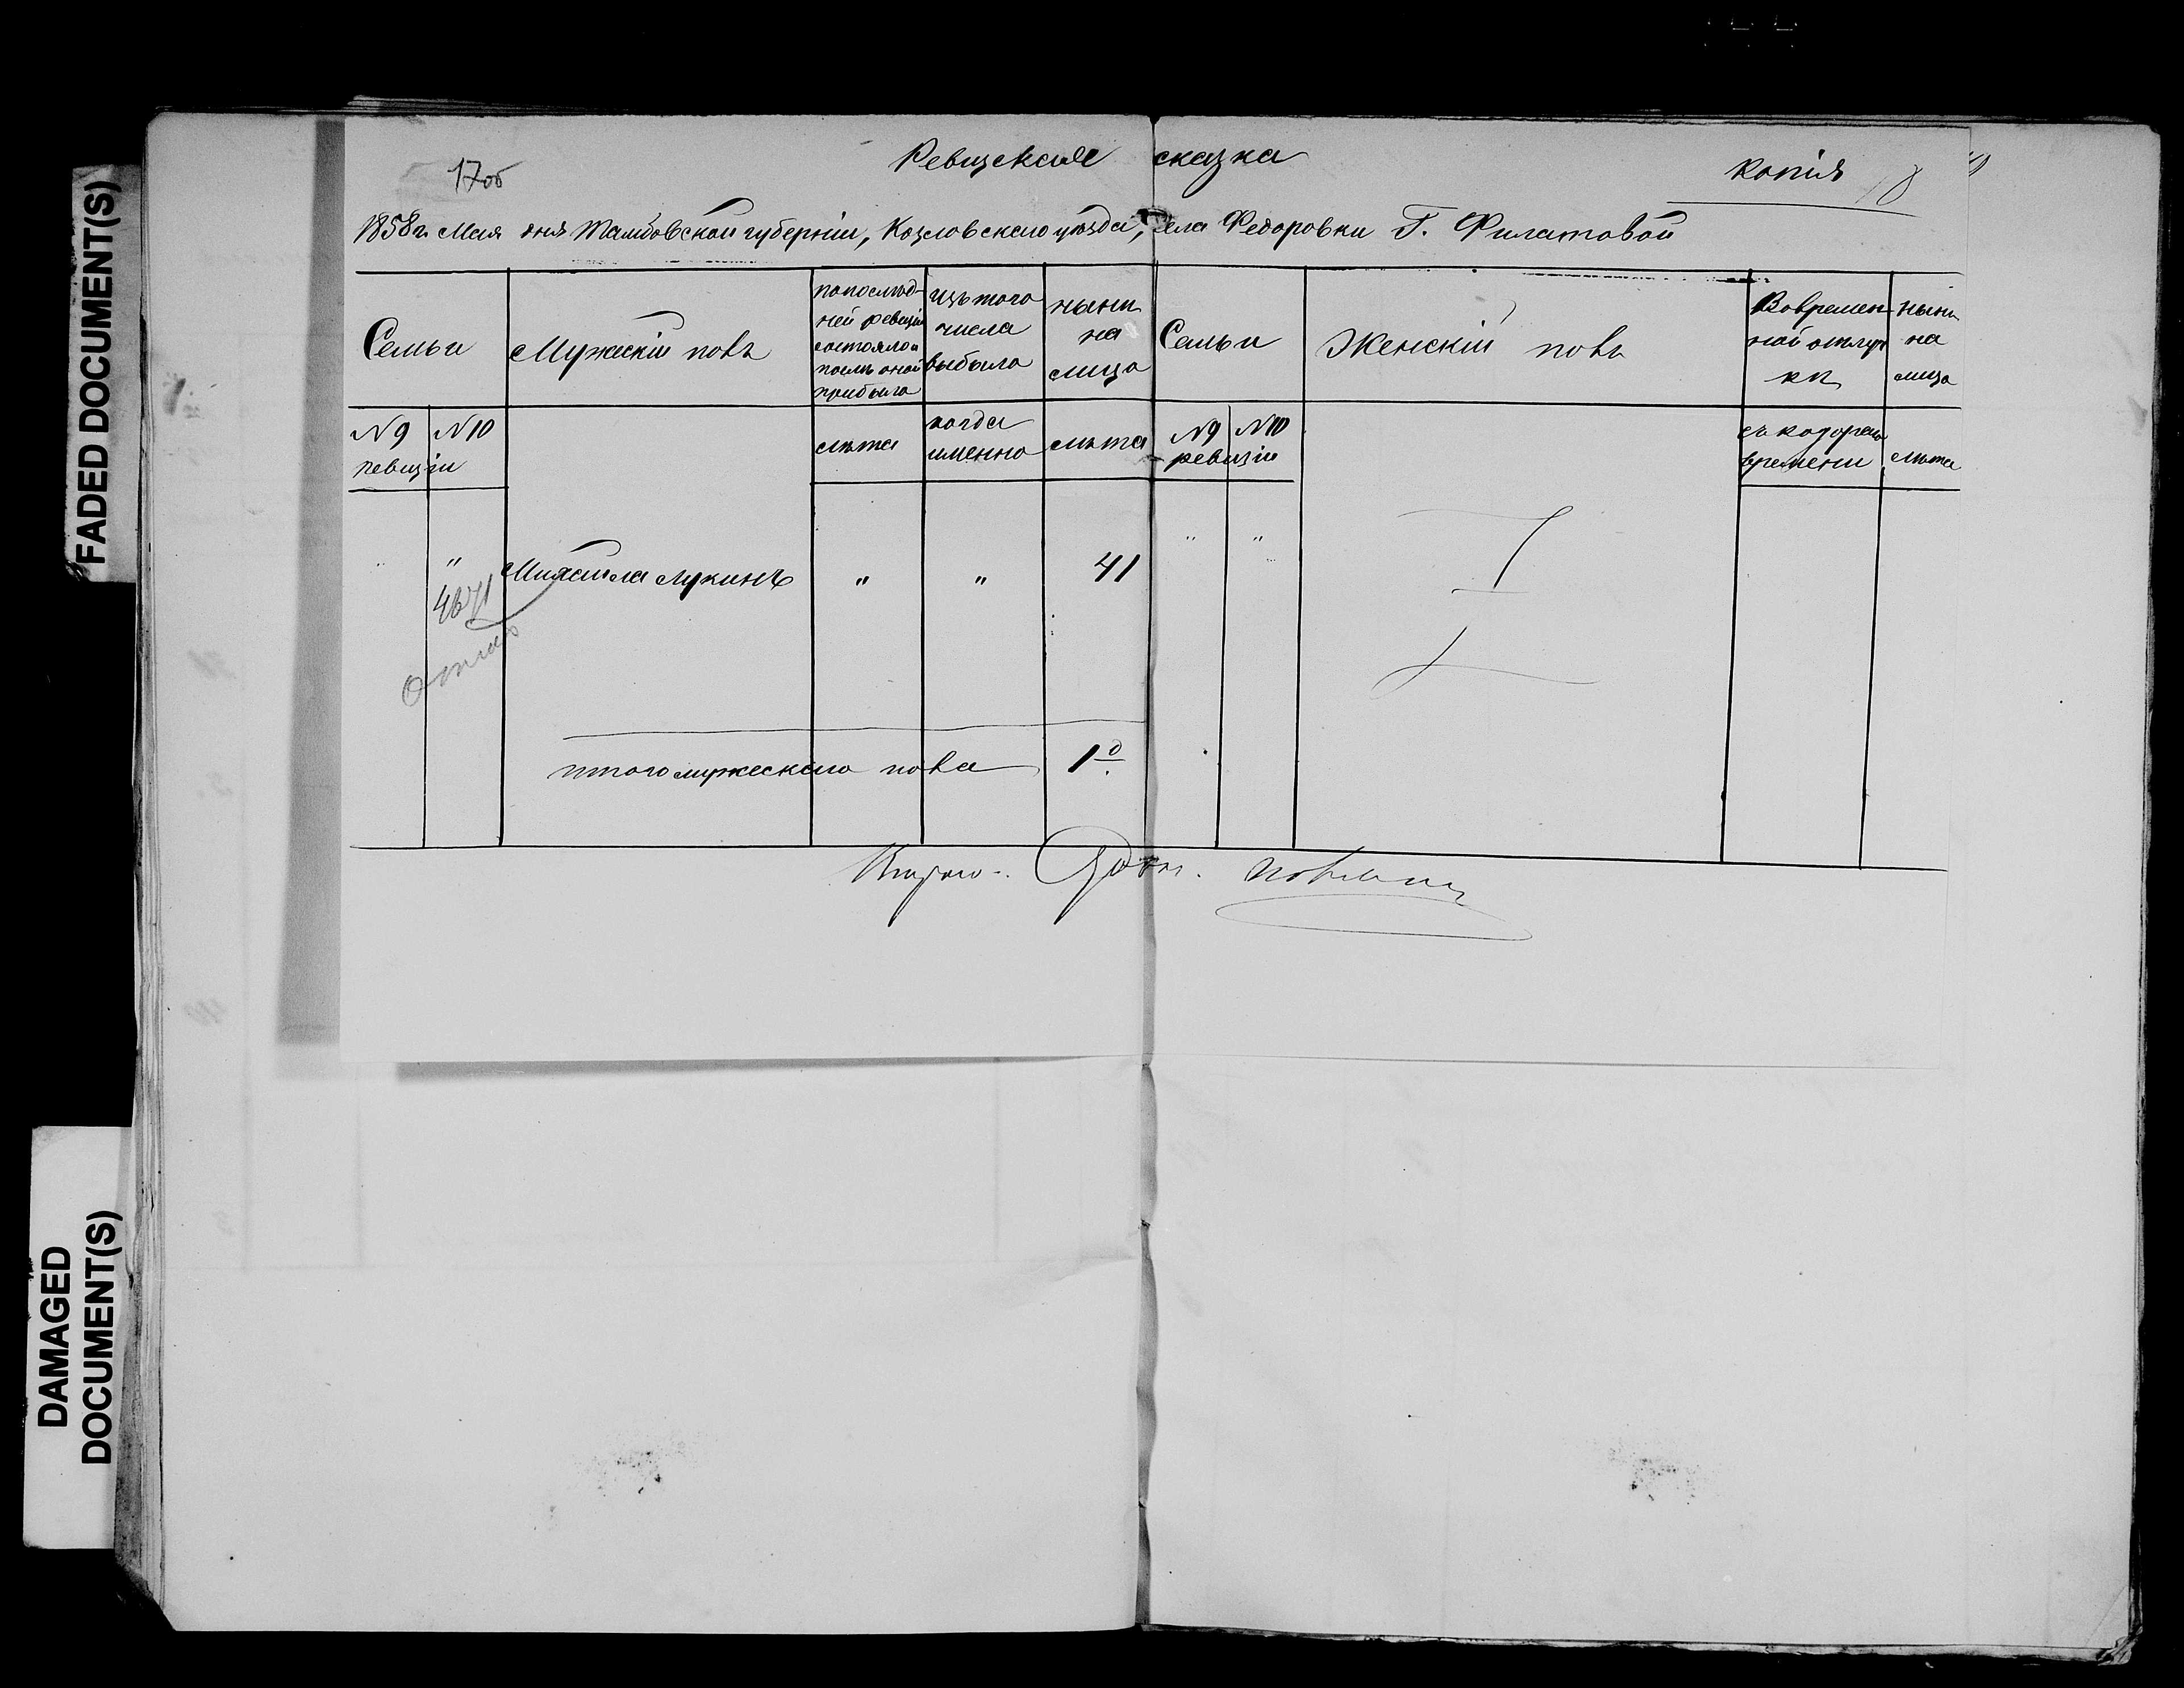 FADED DOCUMENT(S)
DAMAGED
DOCUMENT(S)
17об
Ревизская сказка
Копія
18
1858 г. Мая дня Тамбовской губерніи, Козловскаго уѣзда, Села Федоровки Г. Филатовой
Семьи
Мужескій полъ
по послѣд-
ней ревизіи
состояло и
послѣ оной
прибыло
изъ того
числа
выбыло
нынѣ
на
лицо
Семьи
Женскій полъ
Во времен-
ной отлуч
кѣ
нынѣ
на
лицо
N9 N10
ревизіи
лѣта
когда
именно
лѣта
N9 N10
ревизіи
съ котораго
времени
лѣта
" " Михаила Лукинъ " " 41 " "
итого мужескаго пола 1